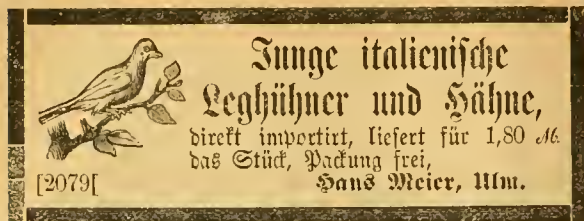 Junge italienische
Leghühner und Hähne,
direkt importirt, liefert für 1,80 M.
das Stück, Packung frei,
[2079[ Hans Meier, Ulm.